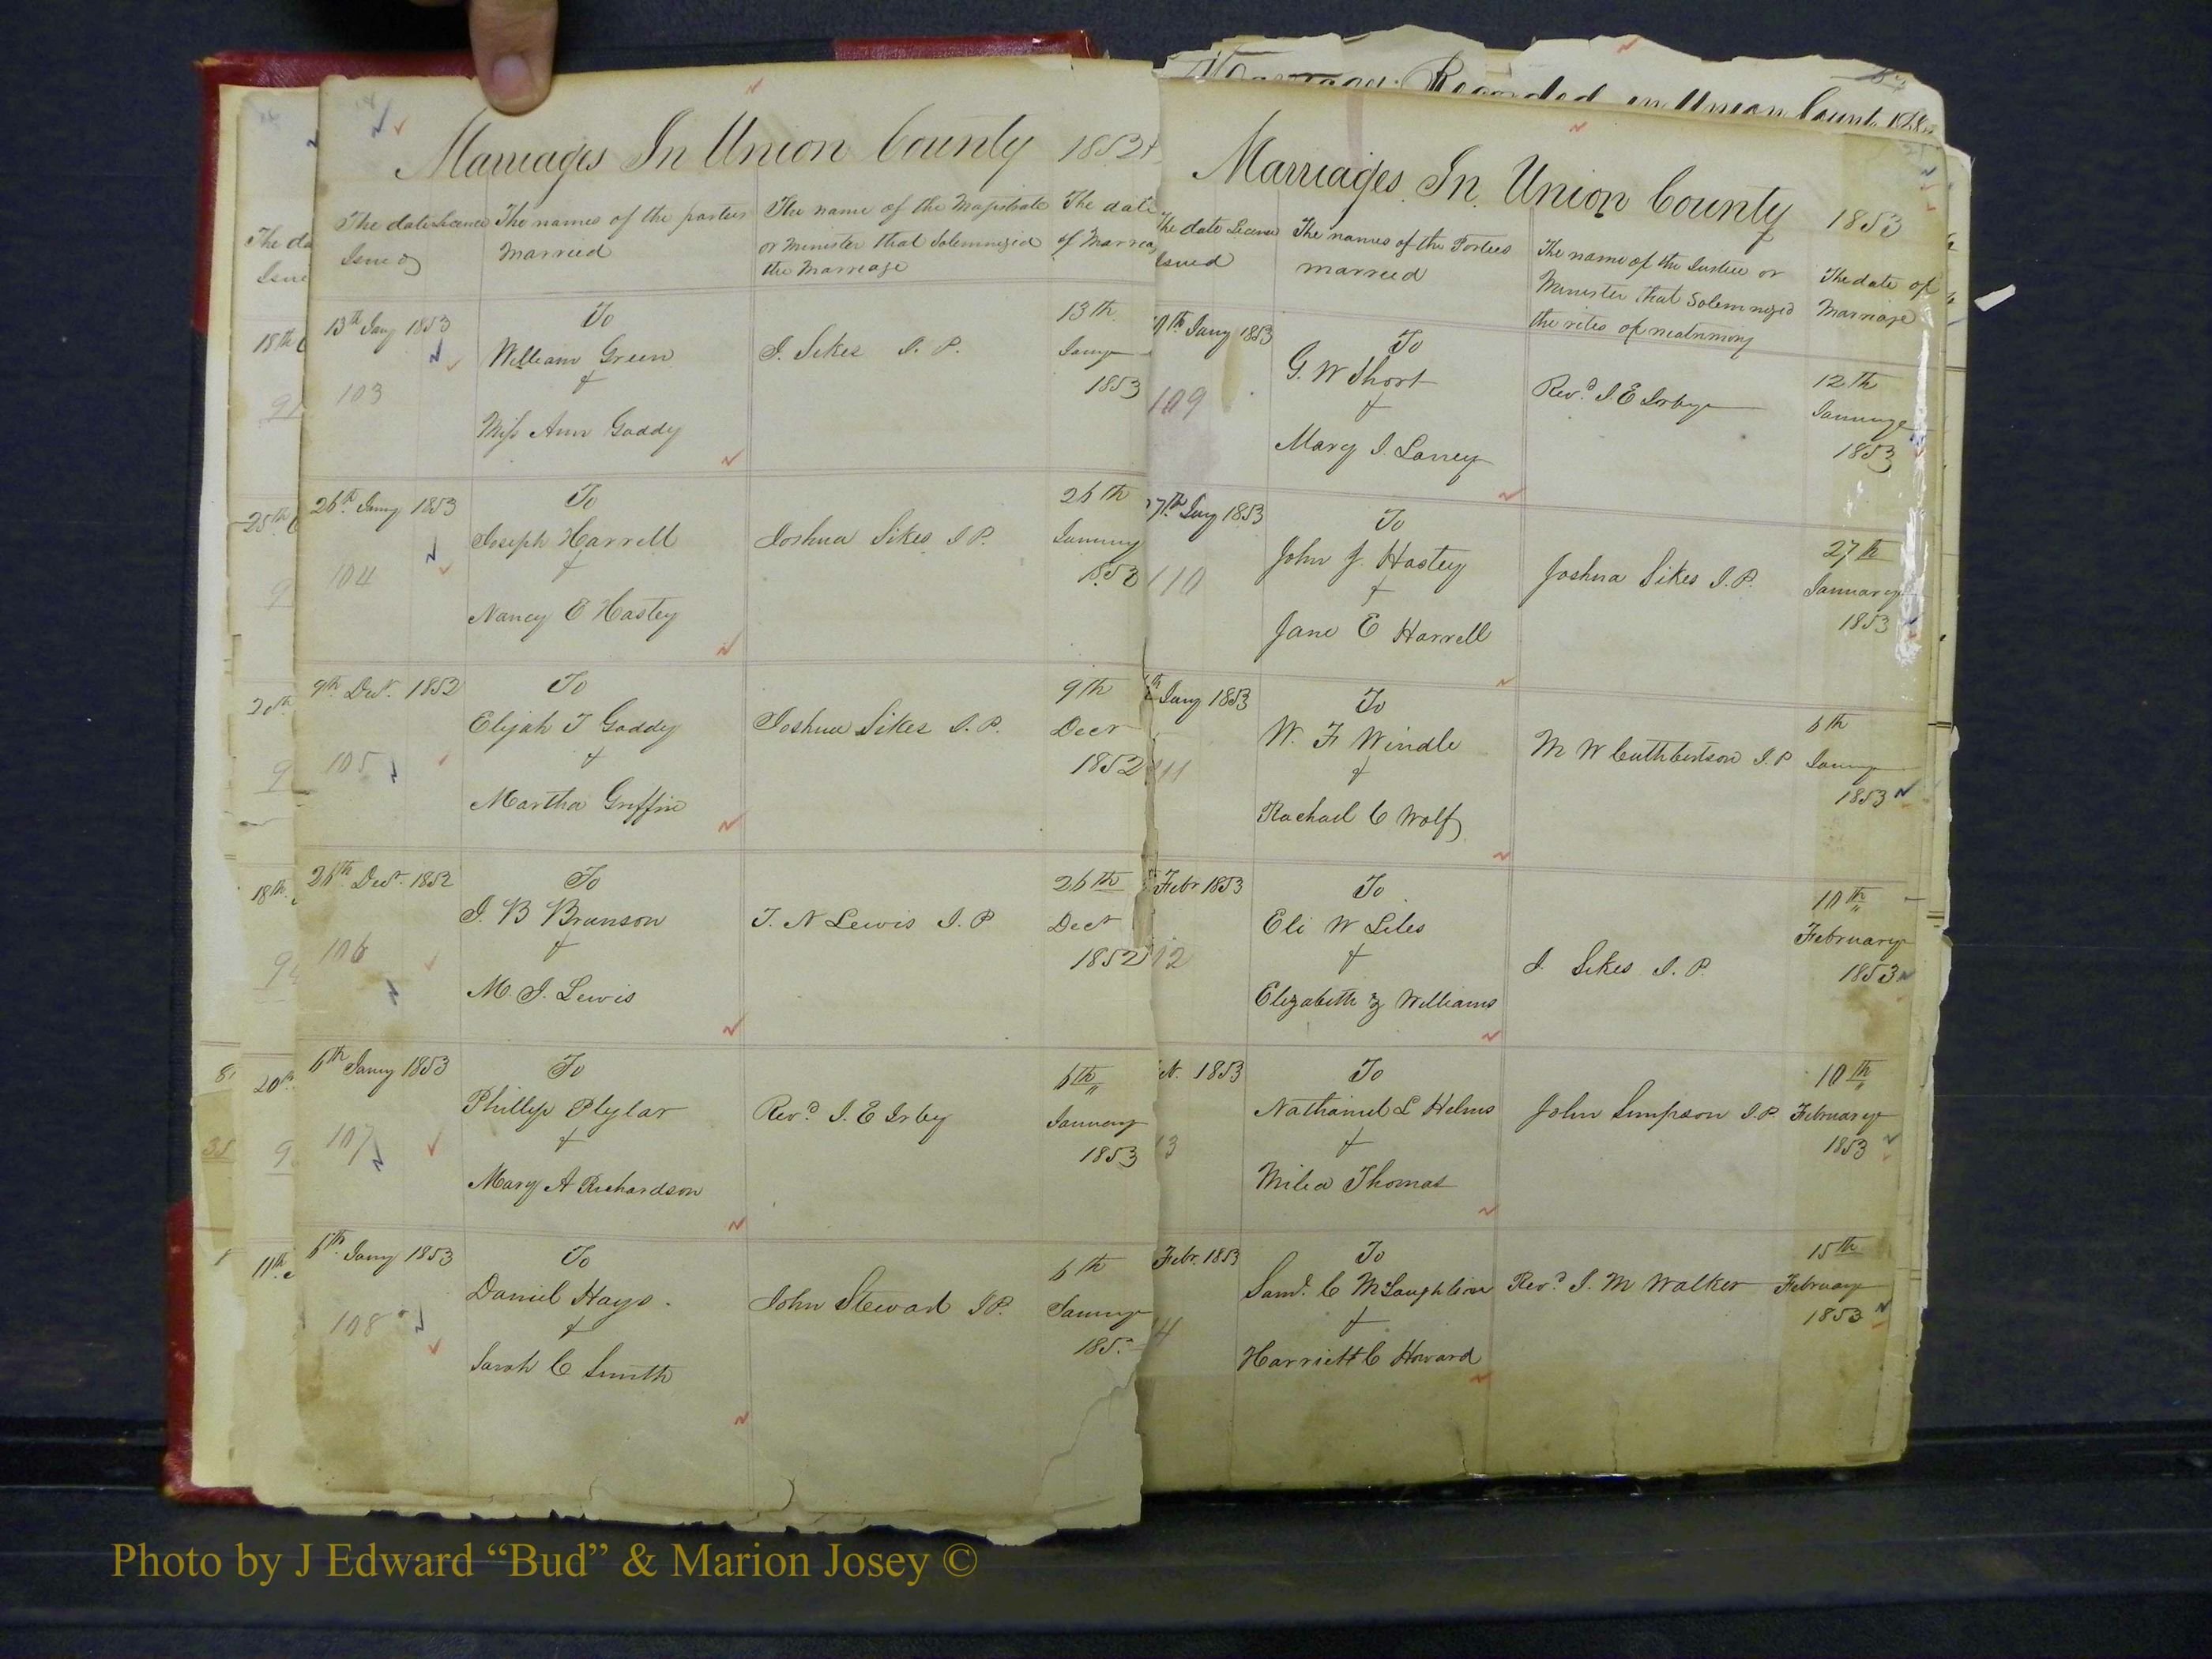 Marriages In Union County 1852 &
The date Licence
Issued
The names of the parties
married
The name of the Magistrate
or Minister that Solemnized
the Marriage
The date
of Marria
13th Jany 1853
103
To
William Green
&
Miss Ann Gaddy
J. Sikes J. P.
13th
Jany
1853
26th Jany 1853
104
To
Joseph Harrell
&
Nancy E Hasley
Joshua Sikes J P.
26th
January
1853
9th Decr. 1852
105
To
Elijah T Gaddy
&
Martha Griffin
Joshua Sikes J. P.
9th
Decr
1852
26th Decr. 1852
106
To
J. B Brunson
&
M. J. Lewis
T. N Lewis J. P
26th
Decr
1852
6th Jany 1853
107
To
Phillip Plylar
&
Mary A Richardson
Revd J. E Irby
6th
January
1853
6th Jany 1853
108
To
Daniel Hays.
&
Sarah C Smith
John Steward J P.
6th
January
185
The da
Issue
18th
91
25th
20th
18th
20th
11th
35
Marriages Recorded in Union Count
Marriages In Union County 1853
The date License
Issued
The names of the Parties
married
The name of the Justice or
Minister that Solemnized
the rites of matrimony
The date of
Marriage
Jany 1853
109
To
G. W Short
&
Mary J. Laney
Revd J. E Irby
12th
January
1853
7th Jany 1853
110
To
John J. Hasley
&
Jane E Harrell
Joshua Sikes J. P.
27th
January
1853
th Jany 1853
111
To
W. F Windle
&
Rachael C Wolf
M W Cuthbertson J. P
6th
Jany
1853
Febr 1853
12
To
Eli W Liles
&
Elizabeth Z Williams
J. Sikes J. P.
10th
February
1853
1853
13
To
Nathaniel L Helms
&
Milea Thomas
John Simpson J. P.
10th
February
1853
Febr. 1853
14
To
Saml. C McLaughlin
&
Harriett C Howard
Revd J. M Walker
15th
February
1853
Photo by J Edward “Bud” & Marion Josey ©